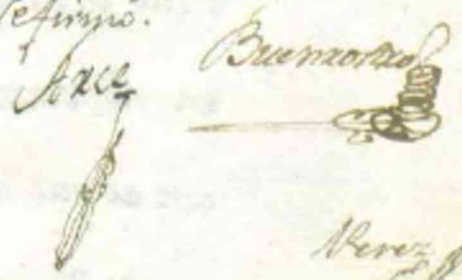 se firmo.
Arce Buenrostro
Perez